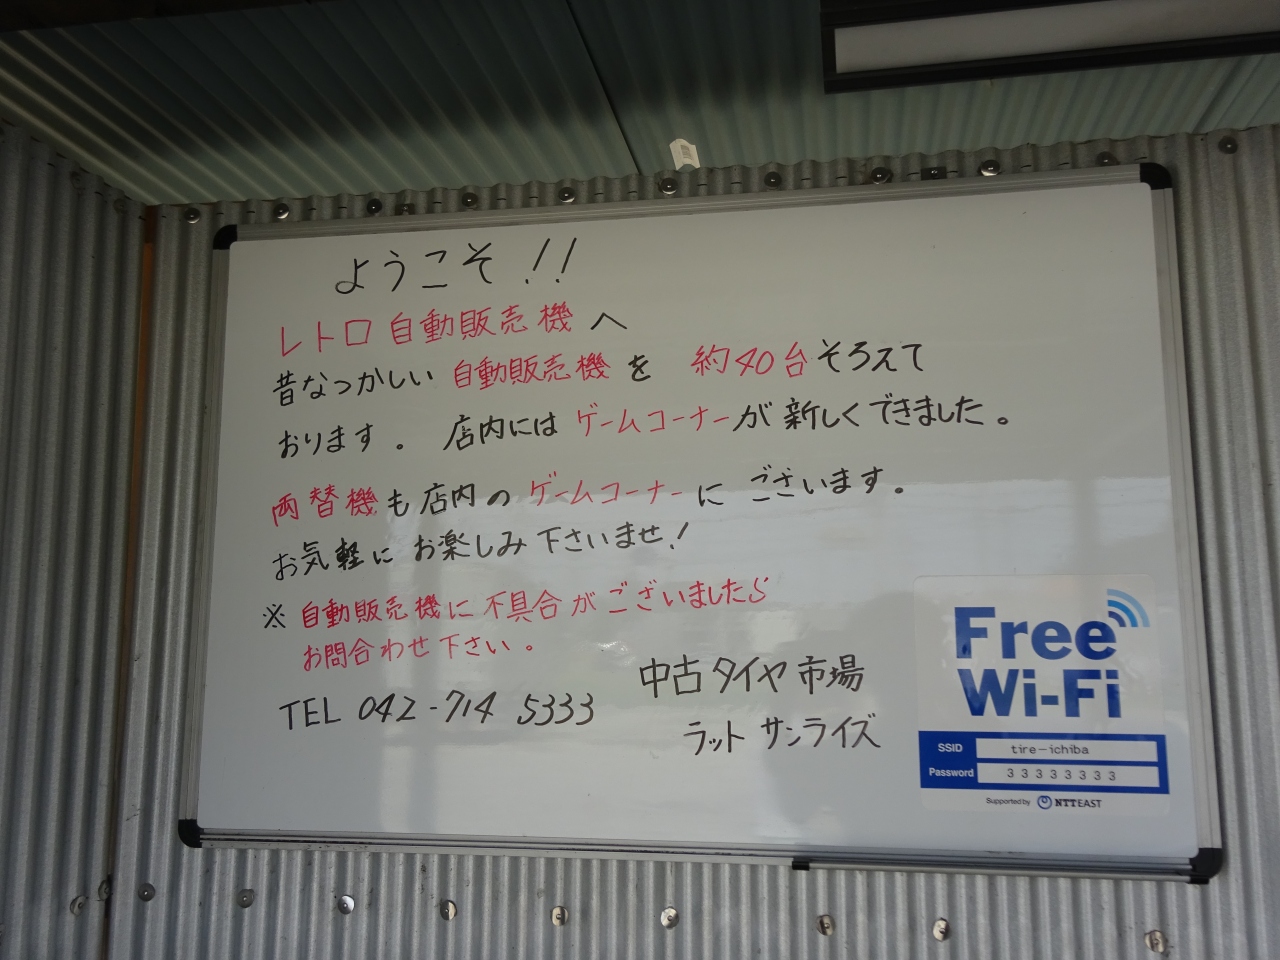 ようこそ!!
レトロ自動販売機へ
昔なつかしい自動販売機を 約40台そろえて
おります。 店内にはゲームコーナーが新しくできました。
両替機も店内のゲームコーナーにございます。
お気軽にお楽しみ下さいませ!
※自動販売機に不具合がございましたら
お問合わせ下さい。
TEL 042-714 5333
中古タイヤ市場
ラットサンライズ
Free
Wi-Fi
SSID tire-ichiba
Password 33333333
Supported by NTT EAST